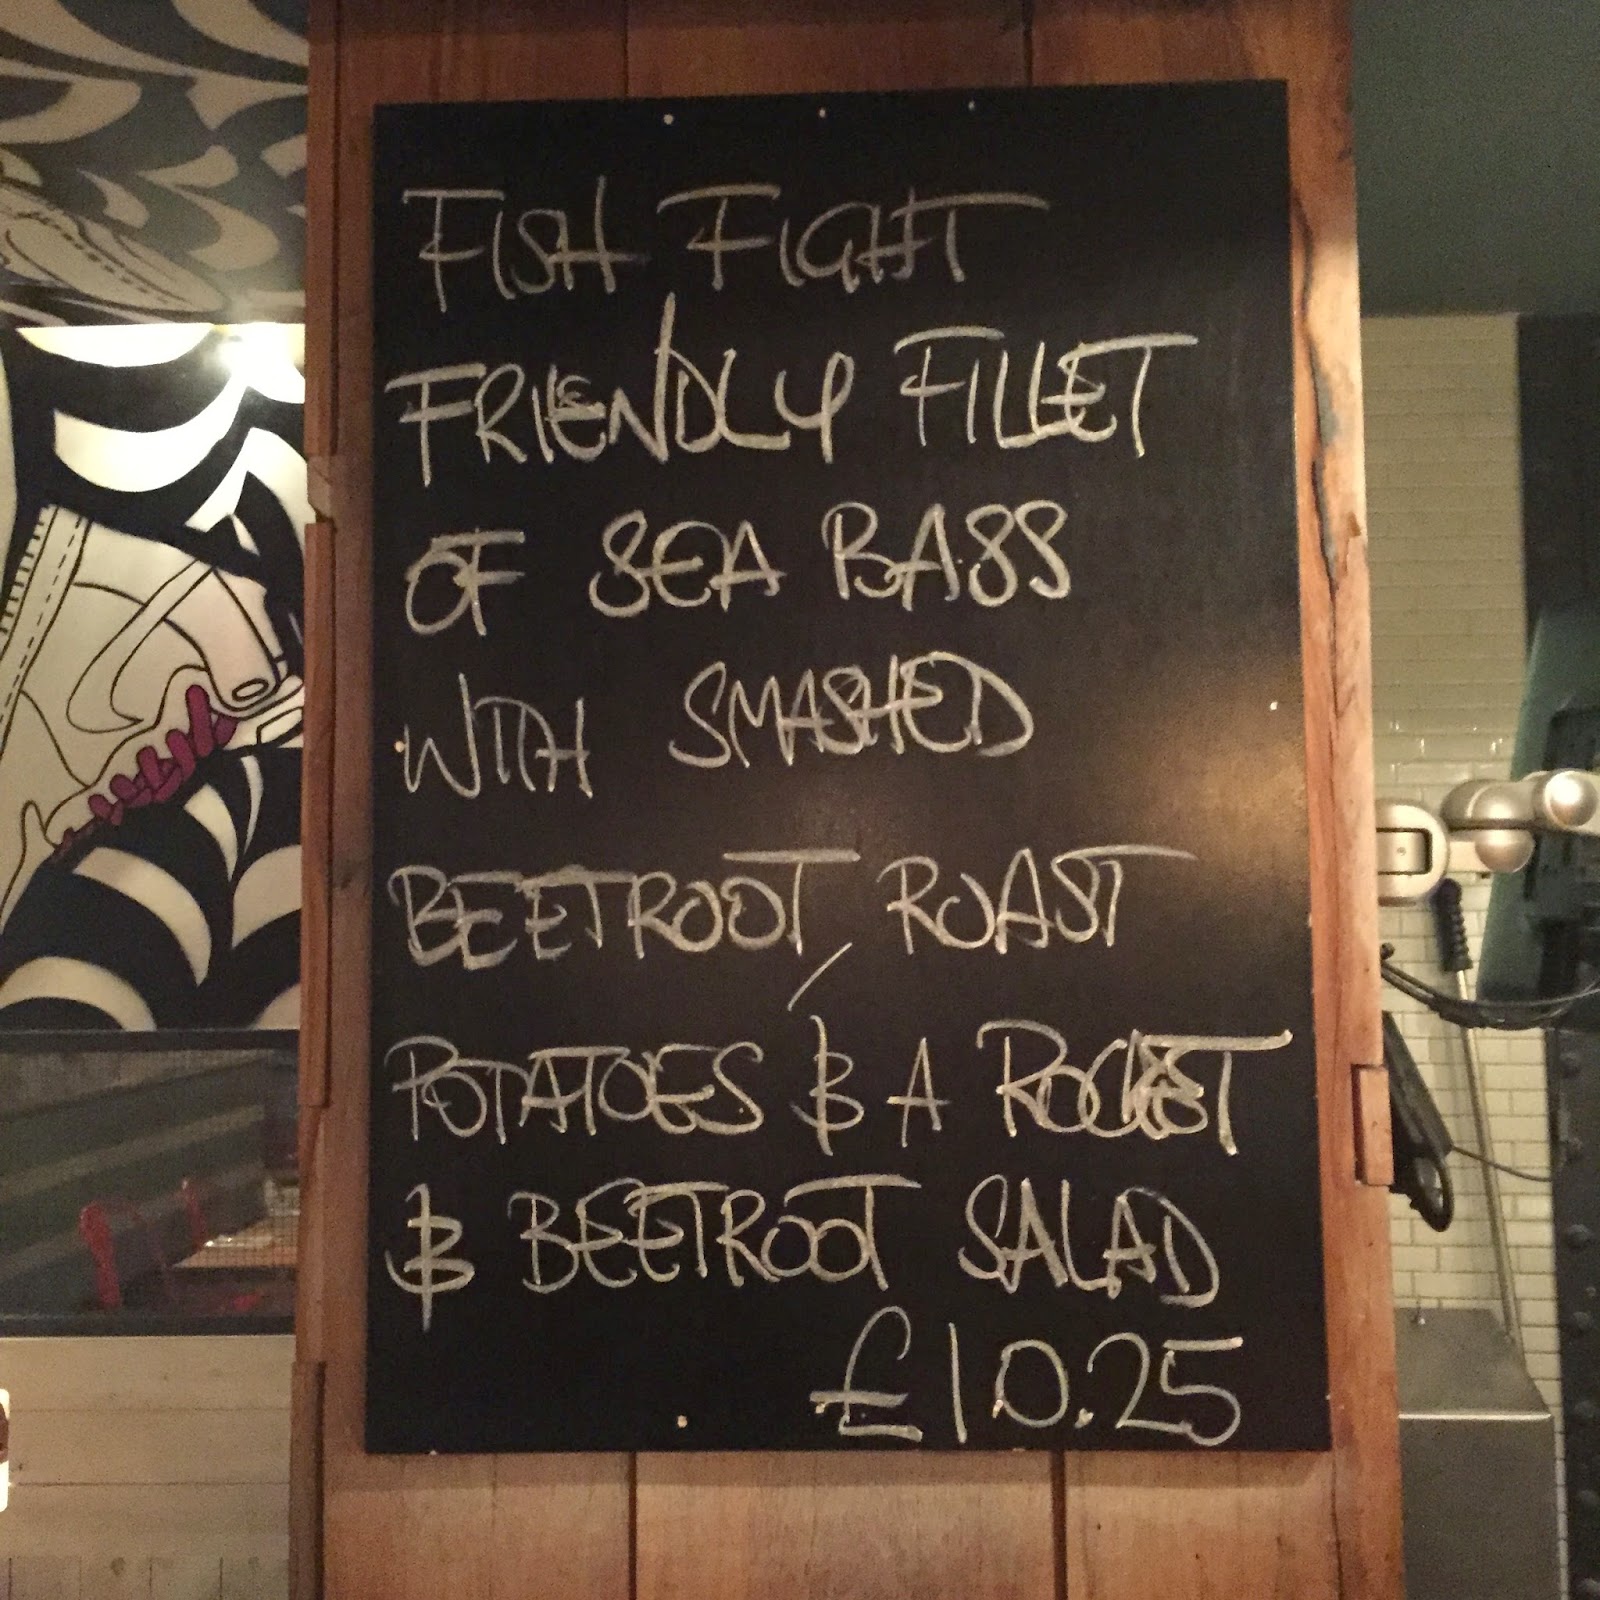 FISH FIGHT
FRIENDLY FILLET
OF SEA BASS
WITH SMASHED
BEETROOT, ROAST
POTATOES & A ROCKET
& BEETROOT SALAD
£10.25